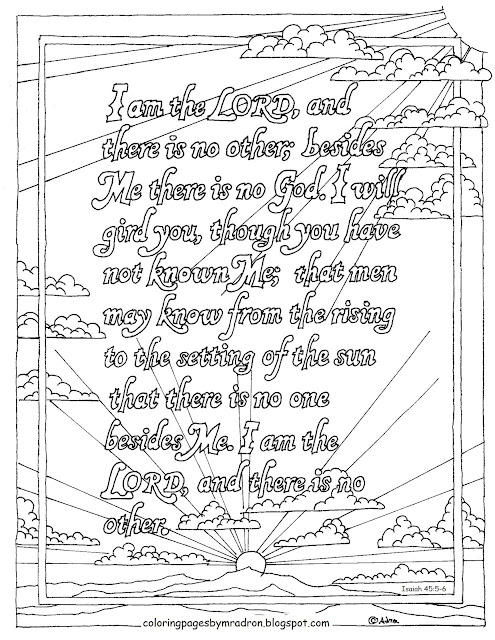 I am the LORD, and
there is no other; besides
Me there is no God. I will
gird you, though you have
not known Me; that men
may know from the rising
to the setting of the sun
that there is no one
besides Me. I am the
LORD, and there is no
other.
Isaiah 45:5-6
© Adron
coloringpagesbymradron.blogspot.com